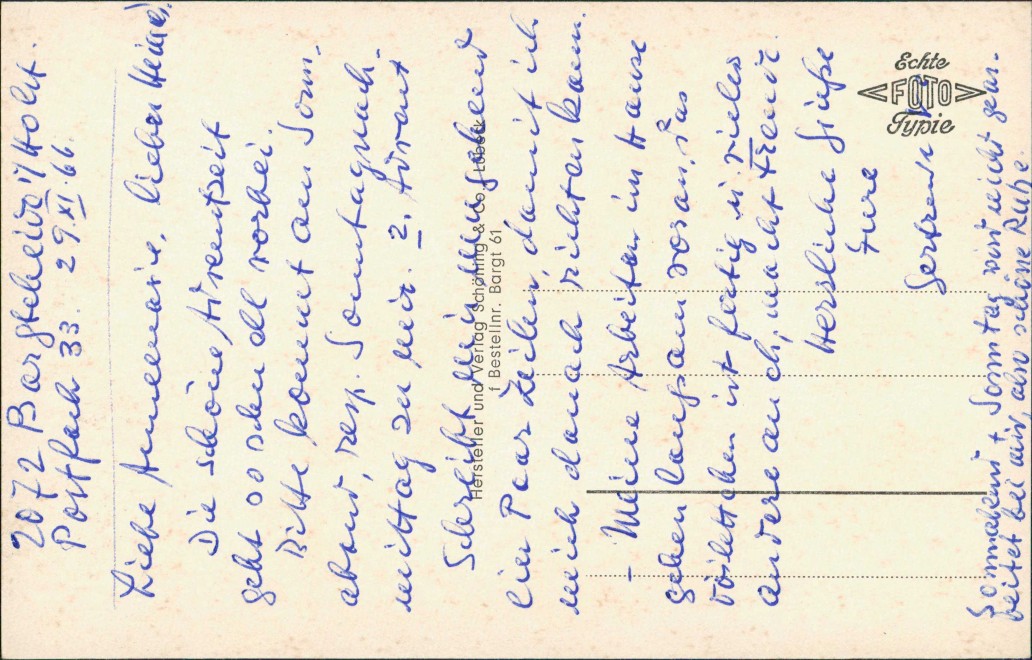 2072 Bargteheide i/Holst.
Postfach 33. 29.XI.66.
Liebe Annemarie, lieber Heiner,
Die schöne Adventzeit
geht so schnell vorbei.
Bitte kommt am Sonn-
abend, resp. Sonntagnach-
mittag zu mir. 2. Advent
Schreibt mir umgehend
ein Paar Zeilen damit ich
mich danach richten kann.
– Meine Arbeiten im Hause
gehen langsam voran. Das
Toiletthchen ist fertig u. vieles
andere auch, macht Freude.
Herzliche Grüße
Eure
Gertrud
Sonnabend + Sonntag wird nicht gear-
beitet bei mir, also schöne Ruhe.
Echte
FOTO
Typie
Hersteller und Verlag Schöning & Co., Lübeck
f Bestellnr. Bargt 61